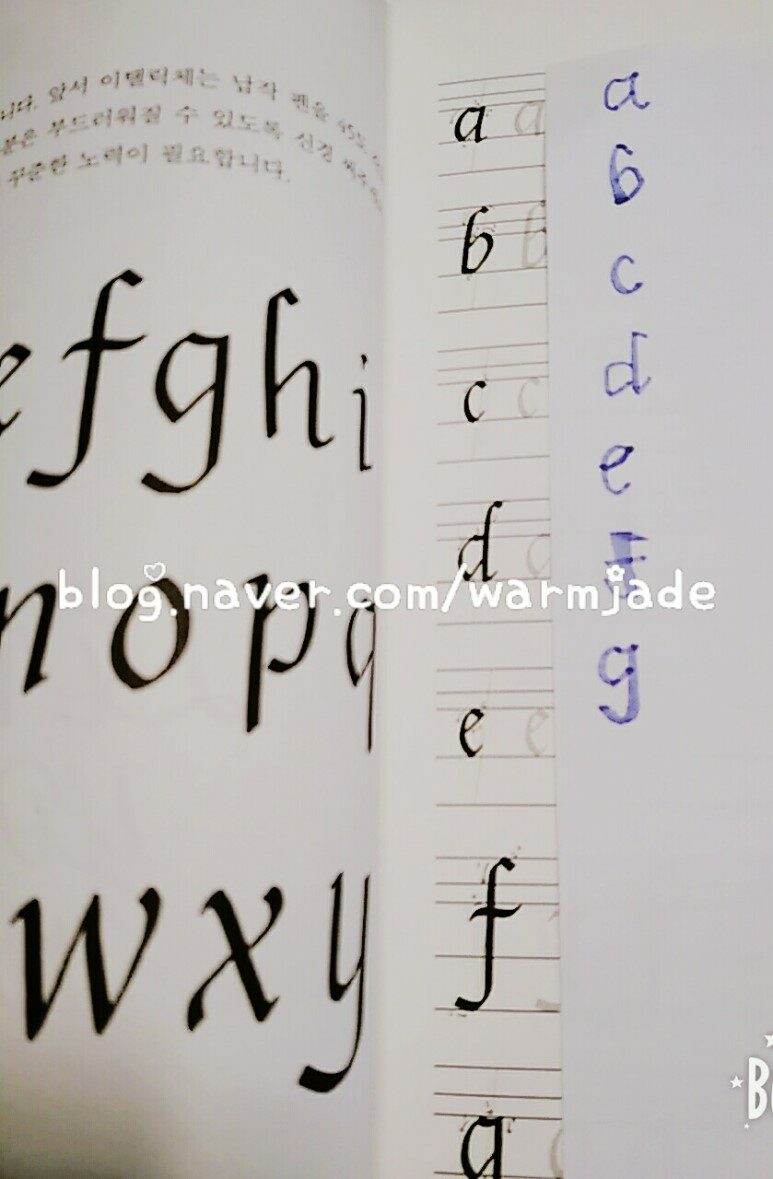 니다. 앞서 이탤릭체는 납작 펜을 45도
분은 부드러워질 수 있도록 신경
꾸준한 노력이 필요합니다.
e f g h i
n o p q
w x y
a a
b b
c c
d
e e
f
g
a
b
c
d
e
f
g
blog.naver.com/warmjade